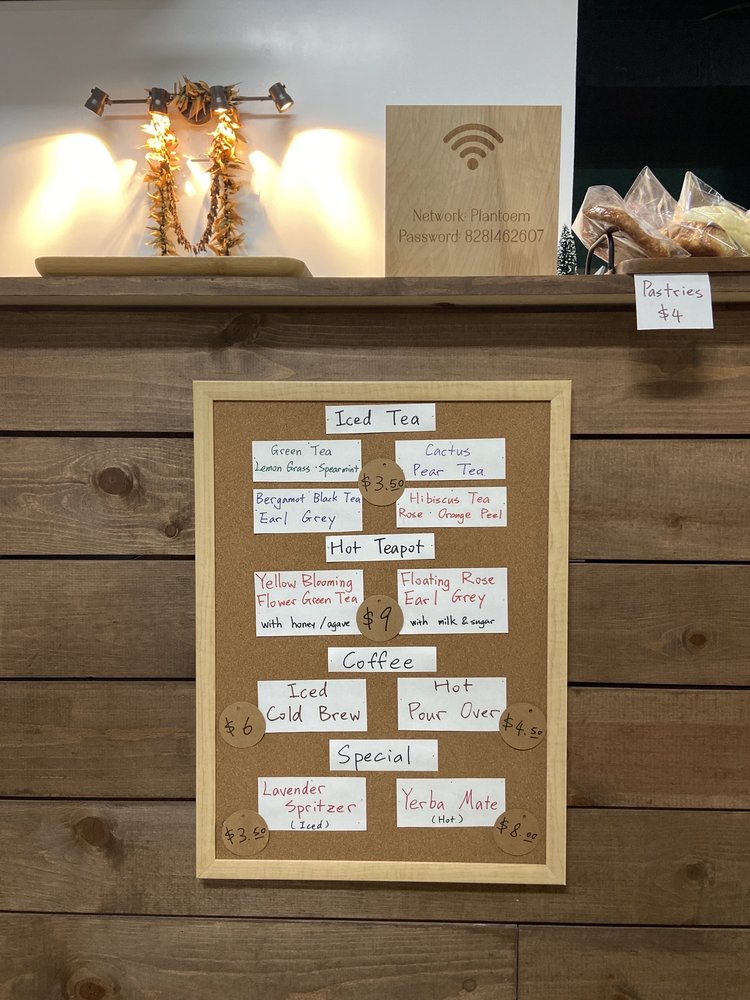 Network: Plantoem
Password: 8281462607
Pastries
$4
Iced Tea
Green Tea
Lemon Grass · Spearmint
Cactus
Pear Tea
$3.50
Bergamot Black Tea
Earl Grey
Hibiscus Tea
Rose · Orange Peel
Hot Teapot
Yellow Blooming
Flower Green Tea
with honey/agave
Floating Rose
Earl Grey
with milk & sugar
$9
Coffee
Iced
Cold Brew
$6
Hot
Pour Over
$4.50
Special
Lavender
Spritzer
(Iced)
$3.50
Yerba Mate
(Hot)
$8.00